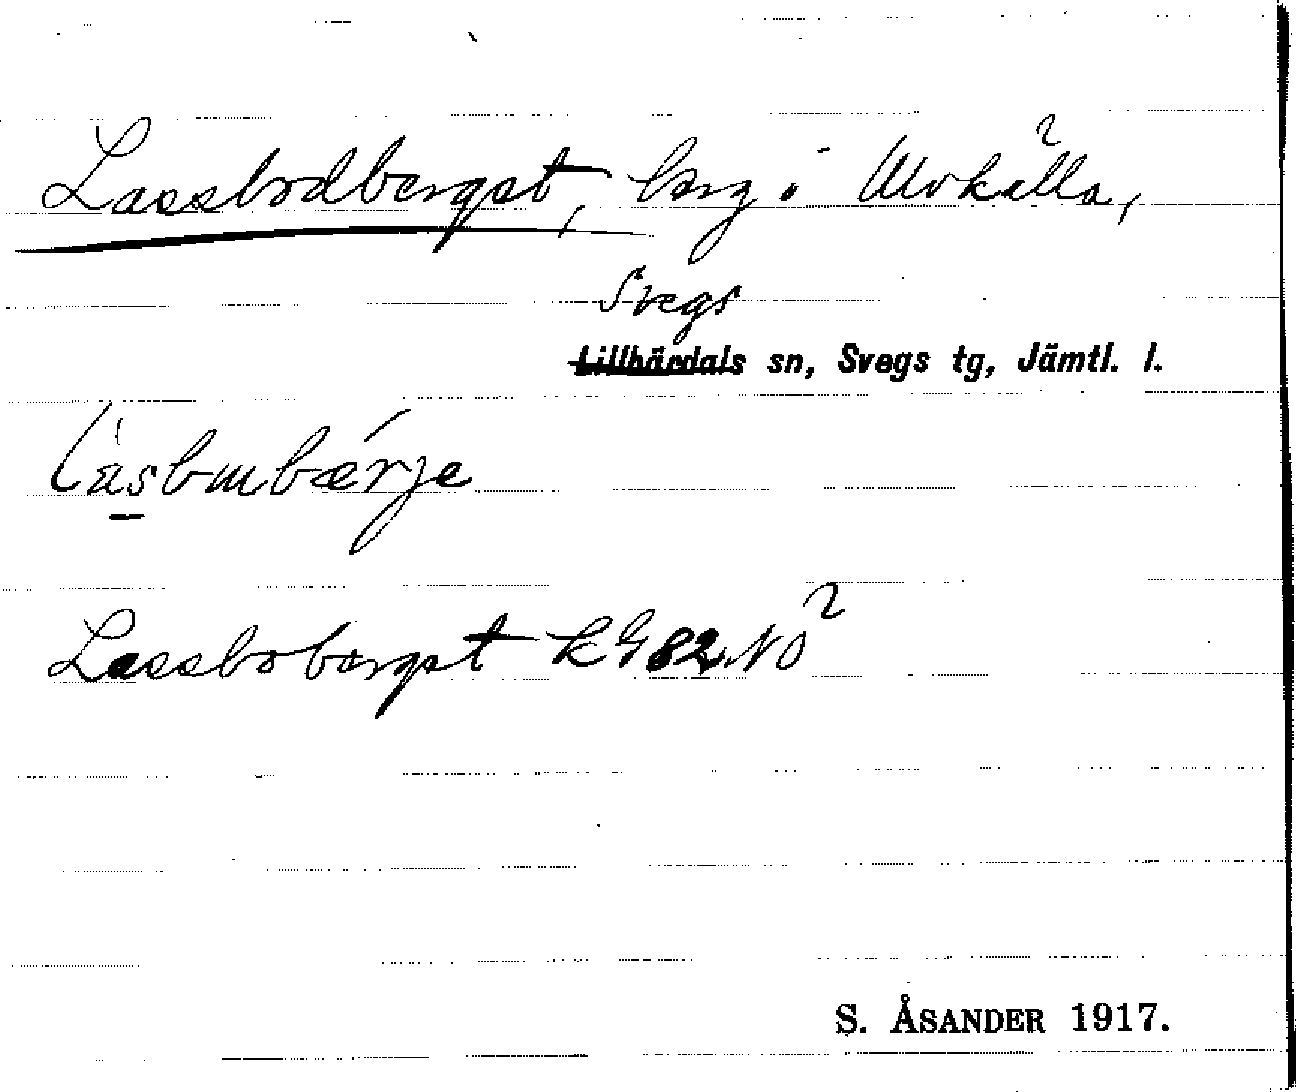 Lassbodberget, berg i Ulvkälla,
Svegs
Lillhärdals sn, Svegs tg, Jämtl. l.
låsbmbærje
Lassboberget KG82NO2
S. ÅSANDER 1917.